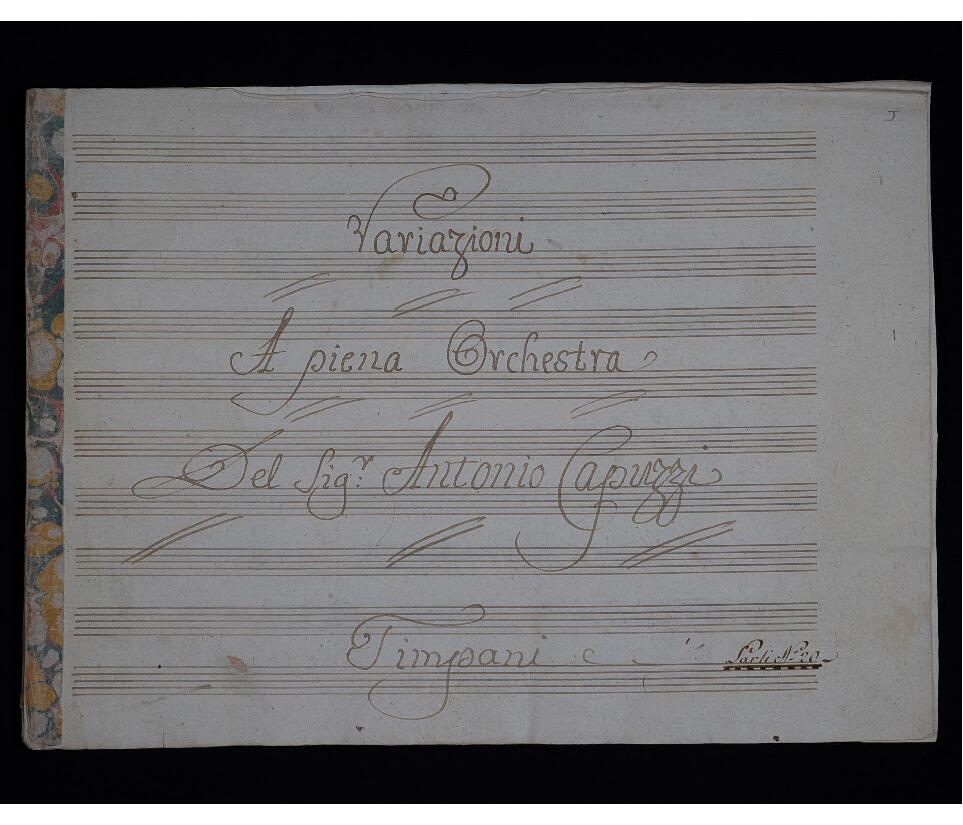 Variazioni
A piena Orchestra
Del Sig.r Antonio Capuzzi
Timpani
N.o 20